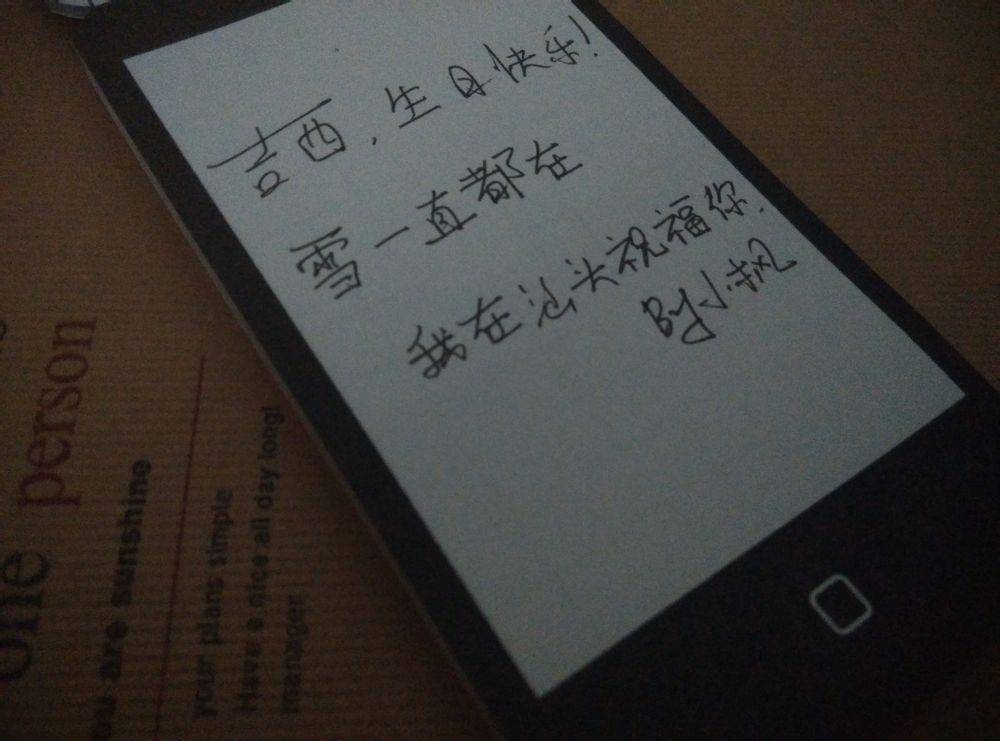 吉西,生日快乐!
雪一直都在
我在汕头祝福你.
By小枫
one person
you are sunshine
your plans simple
Have a nice all day long!
manager